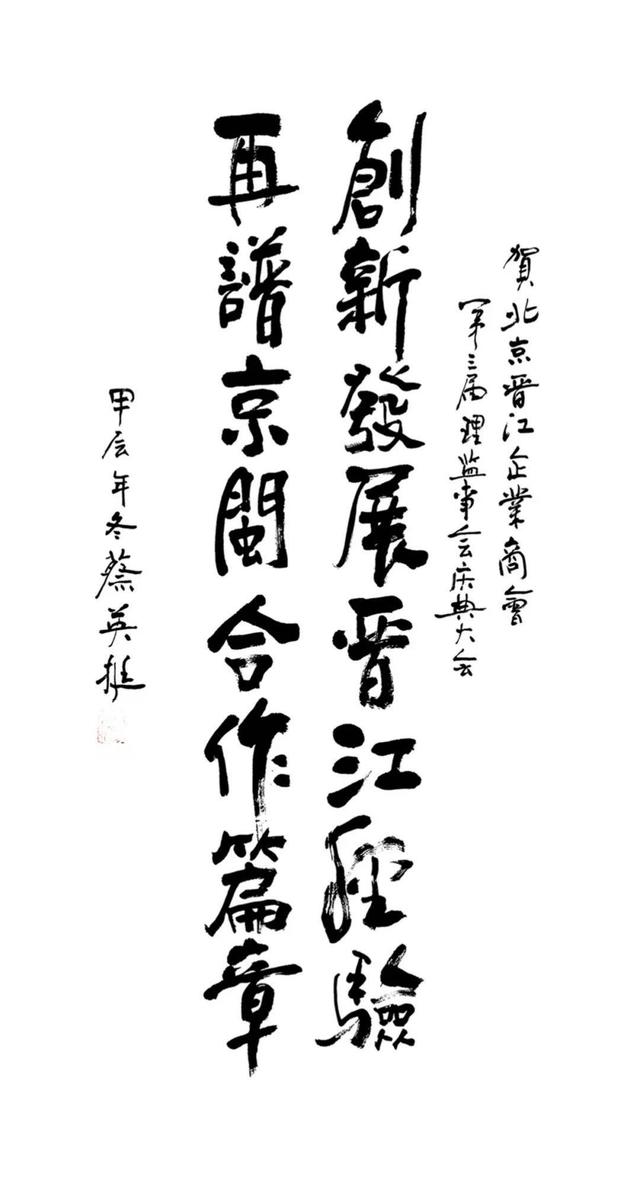 賀北京晋江企業商會
第三届理监事会庆典大会
創新發展晋江經驗
再譜京閩合作篇章
甲辰年冬蔡英挺